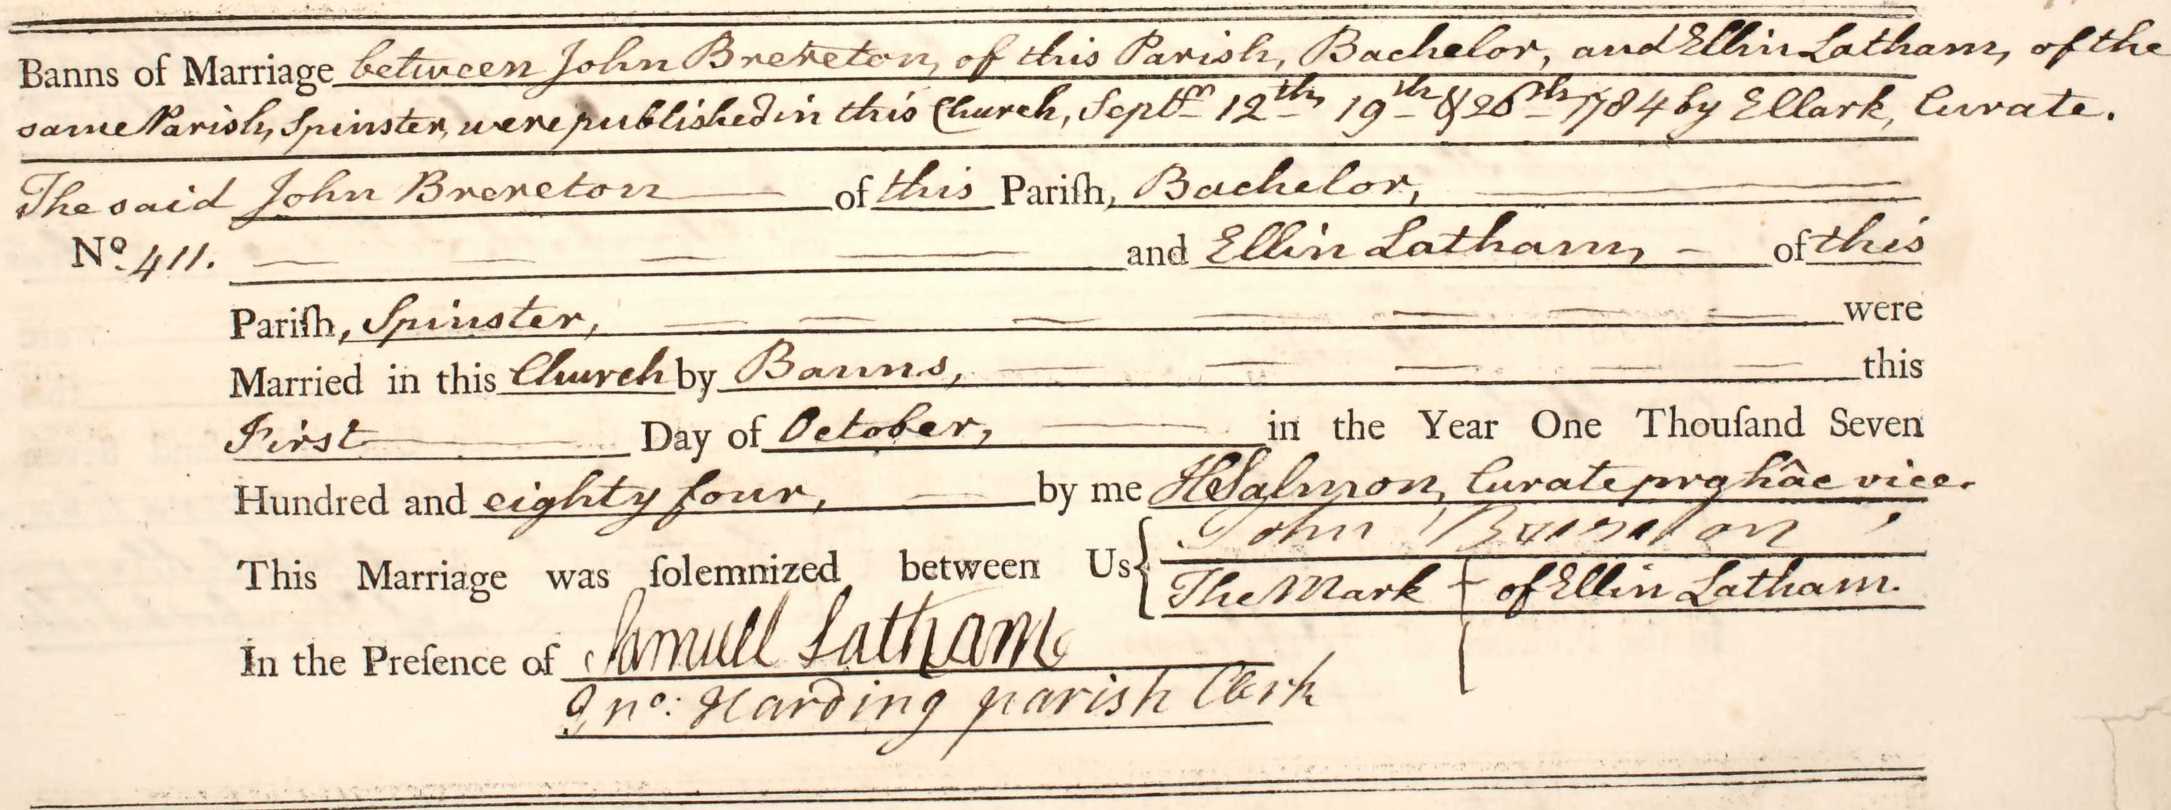 Banns of Marriage between John Brereton, of this Parish, Bachelor, and Ellin Latham, of the
same Parish, Spinster, were published in this Church, Septr. 12th, 19th & 26th 1784 by E Clark, Curate.
The said John Brereton of this Pariſh, Bachelor,
No. 411. and Ellin Latham, of this
Pariſh, Spinster, were
Married in this Church by Banns, this
First Day of October, in the Year One Thouſand Seven
Hundred and eighty four, by me H Salmon, Curate pro hâc vice.
This Marriage was ſolemnized between Us John Brereton
The Mark of Ellin Latham.
In the Preſence of Samuell Latham
Jno: Harding parish Clerk